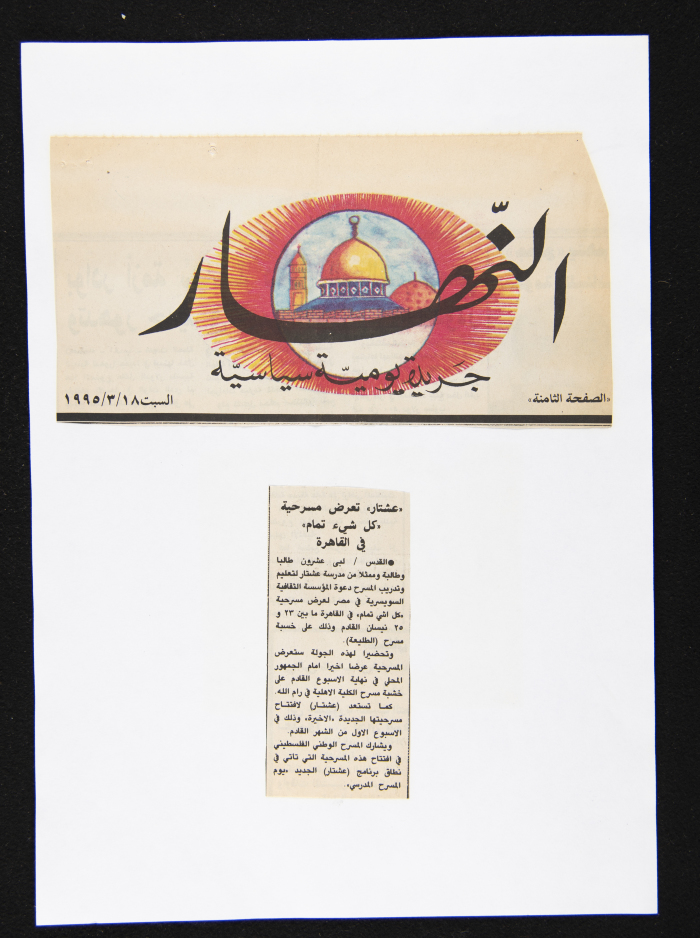 النّهار
جَريدة يوميّة سياسيّة
«الصفحة الثامنة»
السبت ١٩٩٥/٣/١٨
«عشتار» تعرض مسرحية
«كل شيء تمام»
في القاهرة
●القدس / لبى عشرون طالبا
وطالبة وممثلا من مدرسة عشتار لتعليم
وتدريب المسرح دعوة المؤسسة الثقافية
السويسرية في مصر لعرض مسرحية
«كل اشي تمام» في القاهرة ما بين ٢٣ و
٢٥ نيسان القادم وذلك على خسبة
مسرح (الطليعة).
وتحضيرا لهذه الجولة ستعرض
المسرحية عرضا اخيرا امام الجمهور
المحلي في نهاية الاسبوع القادم على
خشبة مسرح الكلية الاهلية في رام الله.
كما تستعد (عشتار) لافتتاح
مسرحيتها الجديدة «الاخيرة» وذلك في
الاسبوع الاول من الشهر القادم.
ويشارك المسرح الوطني الفلسطيني
في افتتاح هذه المسرحية التي تاتي في
نطاق برنامج (عشتار) الجديد «يوم
المسرح المدرسي».